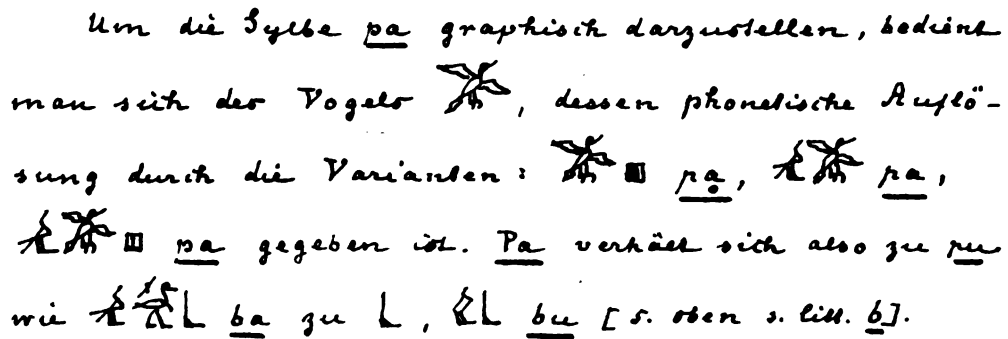 Um die Sylbe pa graphisch darzustellen, bedient
man sich des Vogels 𓅮, dessen phonetische Auflö-
sung durch die Varianten: 𓅮𓊪 pạ, 𓅮 pa,
𓅮𓊪 pa gegeben ist. Pa verhält sich also zu pu
wie 𓃀 ba zu 𓃀, 𓃀 bu [s. oben s. litt. b].